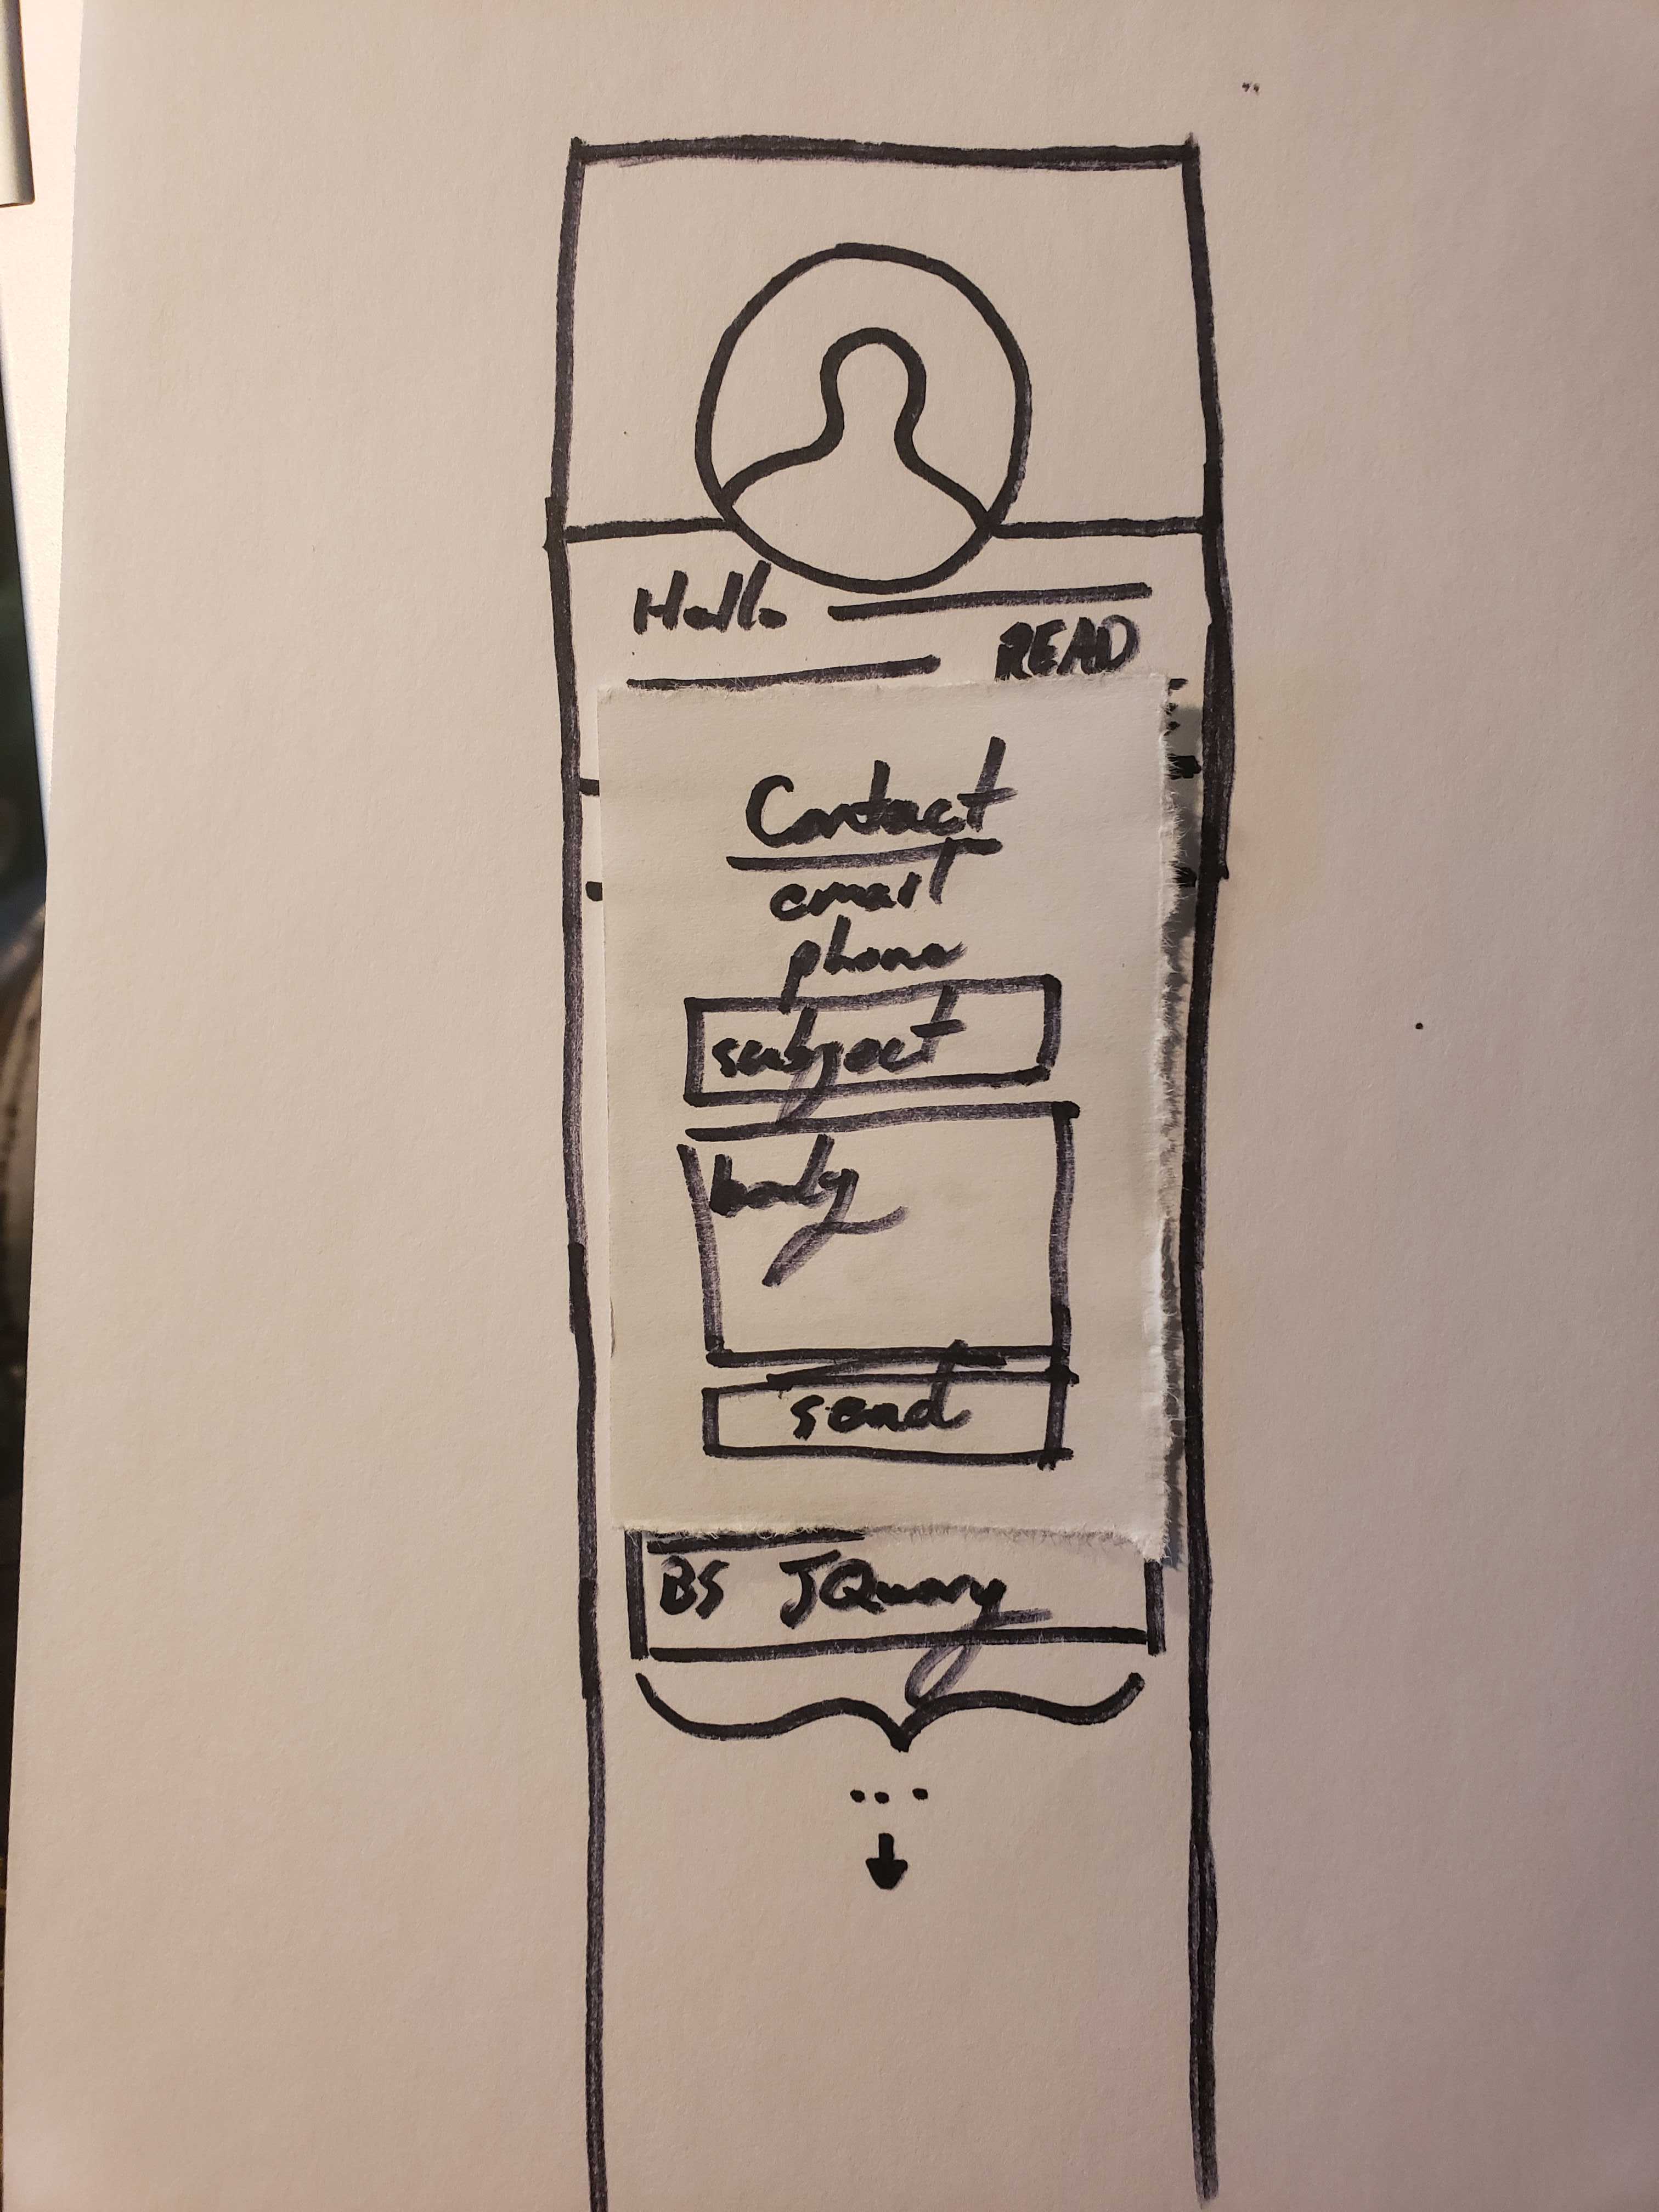 Hello
READ
Contact
email
phone
subject
body
send
BS JQuery
...